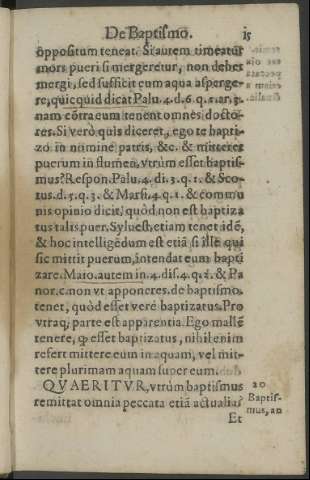 De Baptismo. 15
oppositum teneat. Si autem timeatur
mors pueri si mergeretur, non debet
mergi, sed sufficit eum aqua asperge-
re, quicquid dicat Palu. 4. d. 6. q. 1. ar. 3.
nam cōtra eum tenent omnes docto-
res. Si verò quis diceret, ego te bapti-
zo in nomine patris, &c. & mitteret
puerum in flumen, vtrùm esset baptis-
mus? Respon. Palu. 4. di. 3. q. 1. & Sco-
tus. d. 5. q. 3. & Marsi. 4. q. 1. & commu
nis opinio dicit, quòd non est baptiza
tus talis puer. Syluest, etiam tenet idē,
& hoc intelligēdum est etiā si ille qui
sic mittit puerum, intendat eum bapti
zare. Maio. autem in. 4. dis. 4. q. 2. & Pa
nor. c. non vt apponeres. de baptismo.
tenet, quòd esset verè baptizatus. Pro
vtraq; parte est apparentia. Ego mallē
tenere, ꝙ esset baptizatus, nihil enim
refert mittere eum in aquam, vel mit-
tere plurimam aquam super eum.
QVAERITVR, vtrùm baptismus
remittat omnia peccata etiā actualia?
Et
20
Baptis-
mus, an